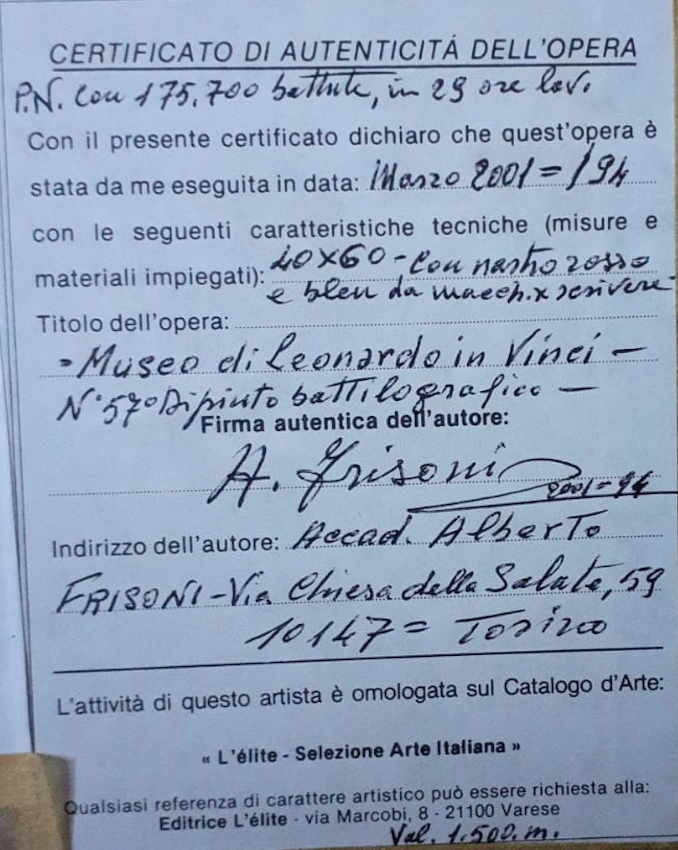 CERTIFICATO DI AUTENTICITÁ DELL'OPERA
P.N. con 175.700 battute, in 29 ore lav.
Con il presente certificato dichiaro che quest'opera è
stata da me eseguita in data: Marzo 2001=/94
con le seguenti caratteristiche tecniche (misure e
materiali impiegati): 40x60 - con nastro rosso
e bleu da macch. x scrivere
Titolo dell'opera:
- Museo di Leonardo in Vinci -
N° 57° Dipinto battilografico -
Firma autentica dell'autore:
A. Frisoni
2001=94
Indirizzo dell'autore: Accad. Alberto
FRISONI - Via Chiesa della Salute, 59
10147= Torino
L'attività di questo artista è omologata sul Catalogo d'Arte:
« L'élite - Selezione Arte Italiana »
Qualsiasi referenza di carattere artistico può essere richiesta alla:
Editrice L'élite - via Marcobi, 8 - 21100 Varese
Val. 1.500. m.